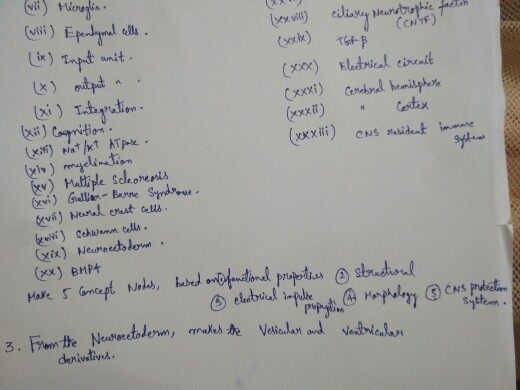 (vii) Microglia.
(viii) Ependymal cells.
(ix) Input unit.
(x) output " "
(xi) Integration.
(xii) Cognition.
(xiii) Na+/K+ ATPase.
(xiv) myelination
(xv) Multiple Scleoreosis
(xvi) Gullian-Barre Syndrome.
(xvii) Neural crest cells.
(xviii) Schwann cells.
(xix) Neuroectoderm.
(xx) BMP4
(xxviii) ciliary Neurotrophic factor
(CNTF)
(xxix) TGF-β
(xxx) Electrical circuit
(xxxi) Cerebral hemisphere
(xxxii) " Cortex
(xxxiii) CNS resident immune
system
Make 5 Concept Nodes, based on ① functional properties ② Structural
③ electrical impulse
propagation ④ Morphology ⑤ CNS protection
system.
3. From the Neuroectoderm, makes the Vesicular and Ventricular
derivatives.